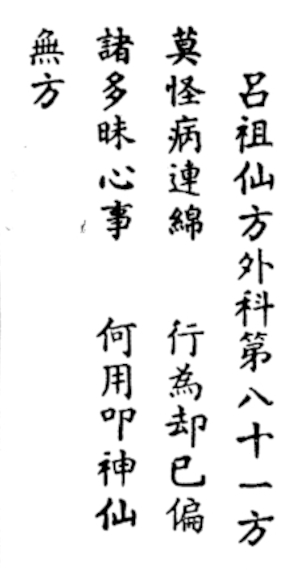 呂祖仙方外科第八十一方
莫怪病連綿 行為却已偏
諸多昧心事 何用叩神仙
無方